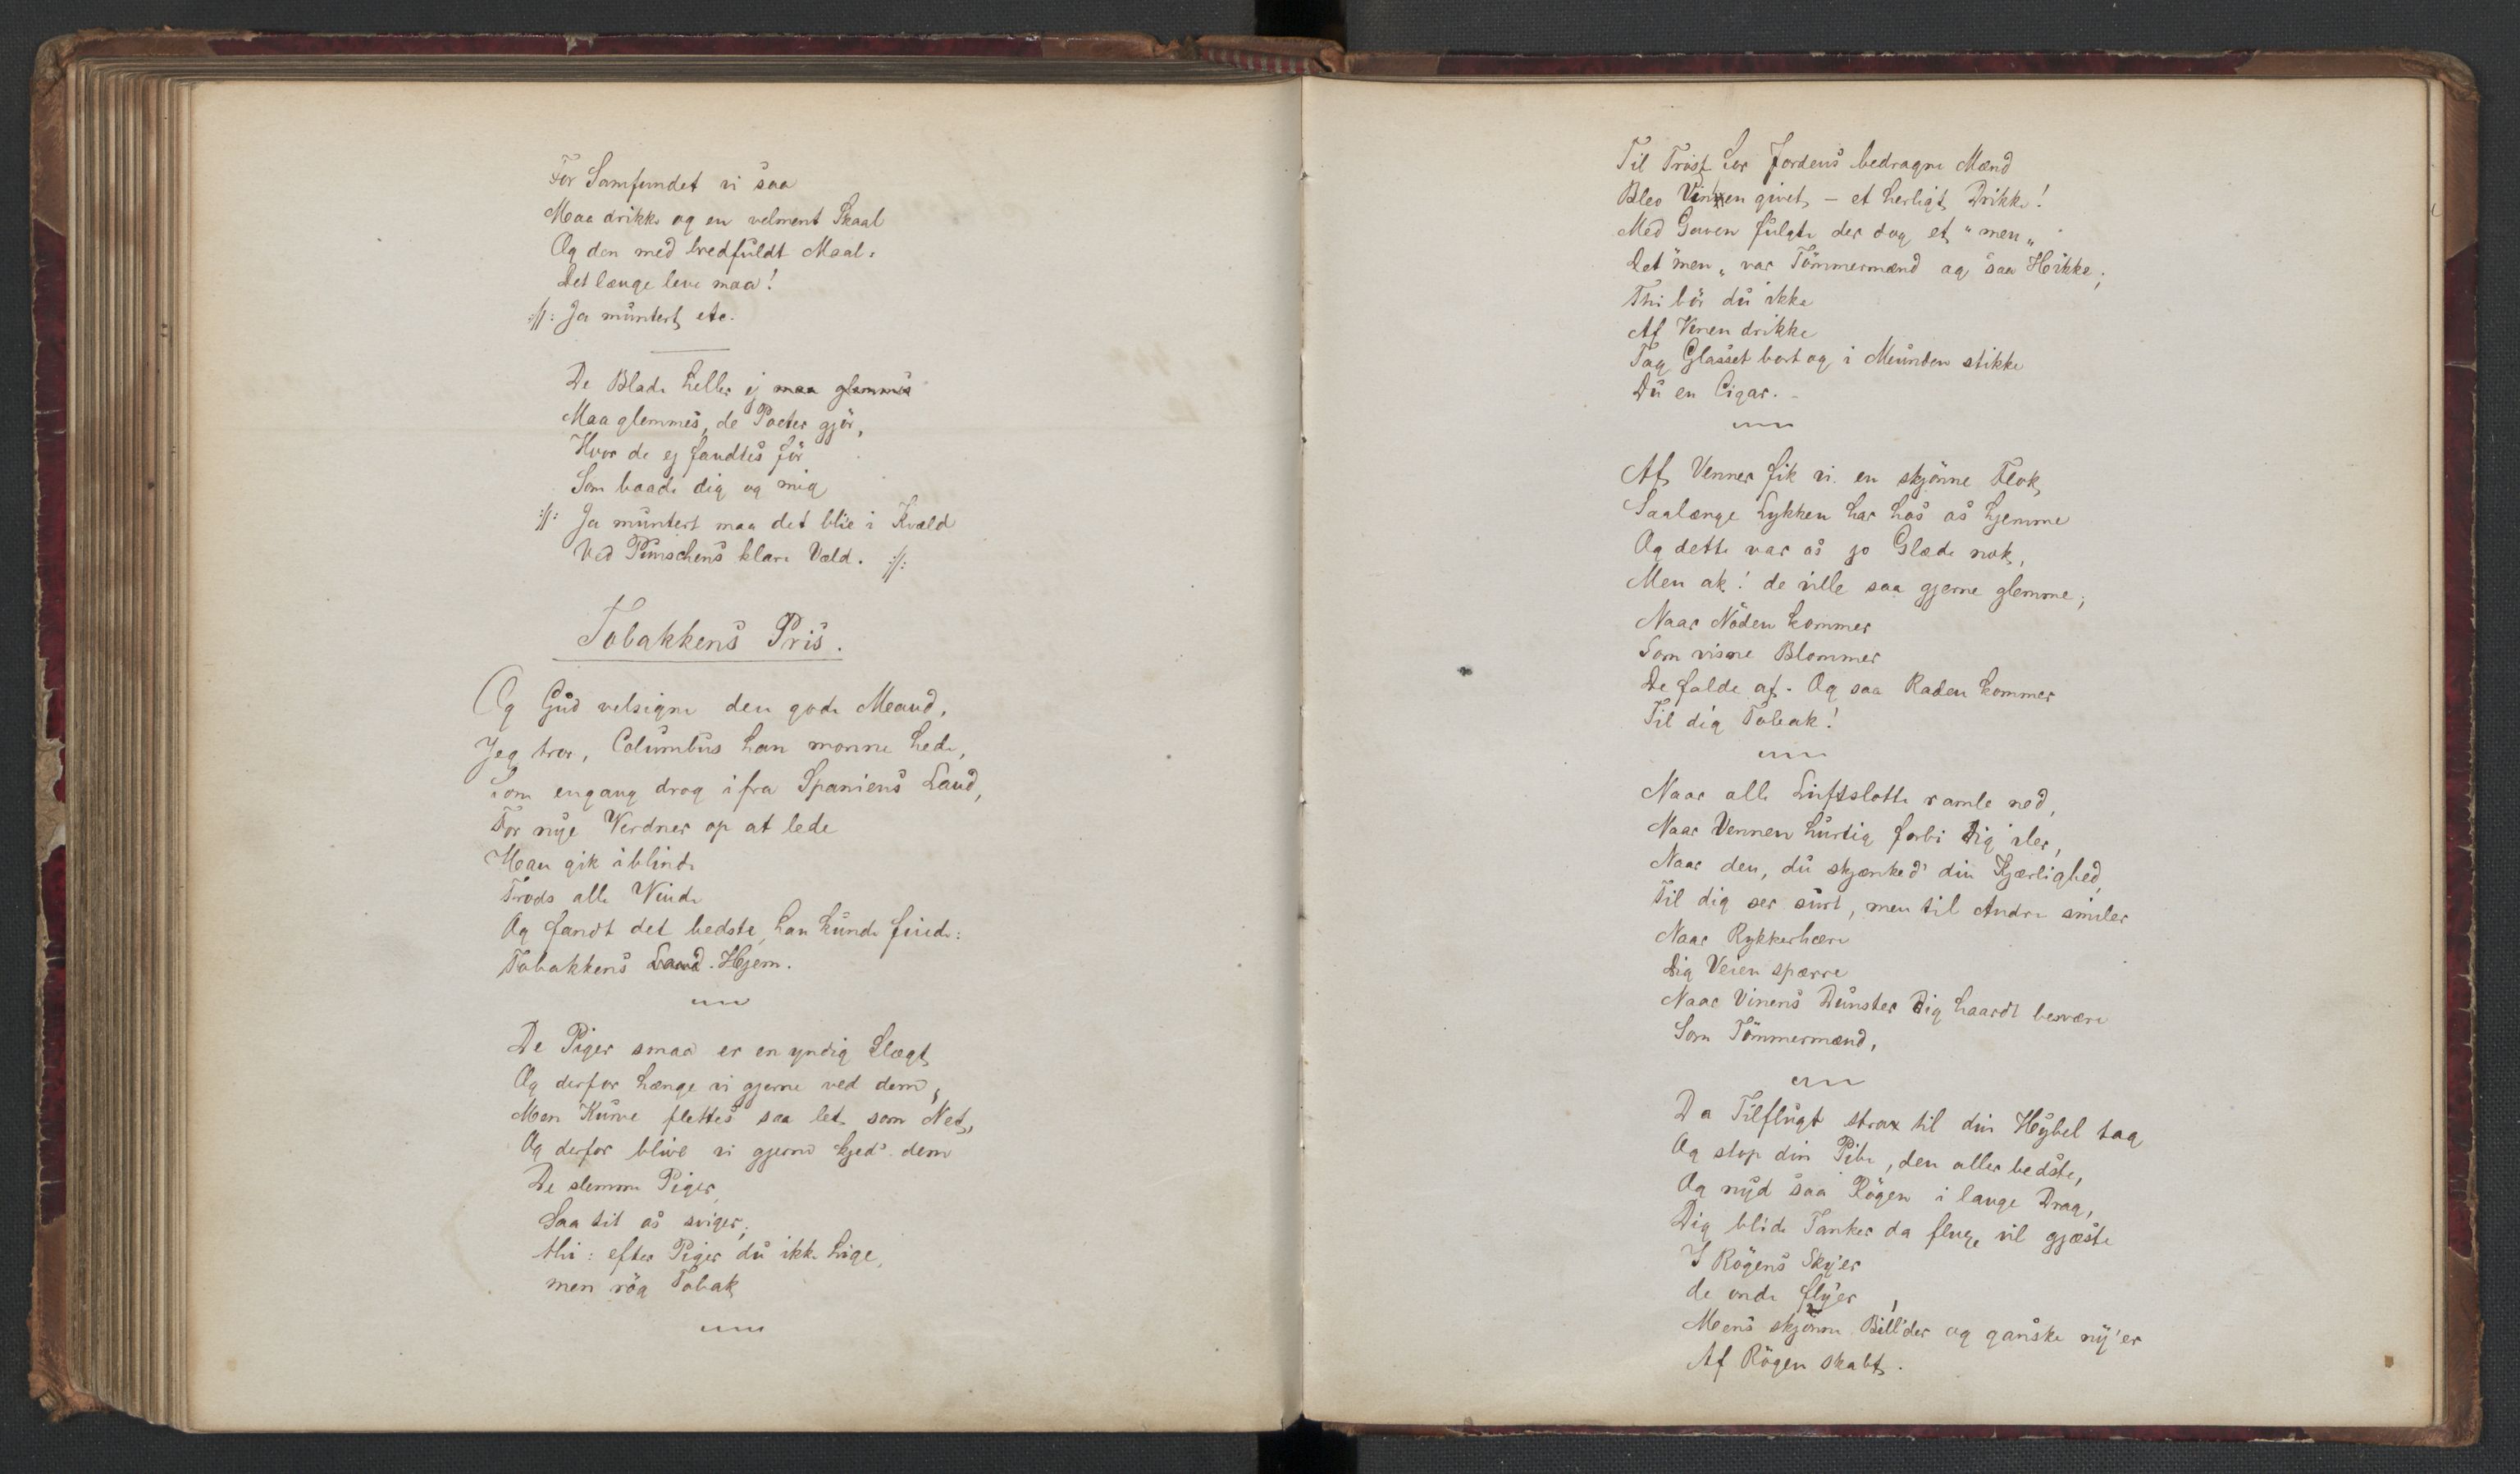 For Samfundet vi saa
Maa drikke og en velment Skaal
Og den med bredfuldt Maal.
Det længe leve maa!
://: Ja muntert etc.
De Blade heller ej maa glemmes
Maa glemmes, de Poeter gjör,
Hvor de ej fandtes för
Som baade dig og mig
:||: Ja muntert maa det blie i Kvæld
Ved Punschens klare Væld. :||:
Tobakkens Pris.
Og Gud velsigne den gode Mand,
Jeg tror, Columbus han monne hede,
Som engang drog ifra Spaniens Land,
For nye Verdner op at lede
Han gik iblinde
Trods alle Vinde
Og fandt det bedste, han kunde finde:
Tobakkens Land. Hjem.
De Piger smaa er en yndig Slægt
Og derfor hænge vi gjerne ved dem,
Men Kurve flettes saa let som Net,
Og derfor blive vi gjerne kjed' dem
De slemme Piger
Saa tit os sviger,
thi: efter Piger du ikke hige,
men rög Tobak
Til Tröst for Jordens bedragne Mænd
Blev Vinen givet, – et herligt Drikke!
Med Gaven fulgte der dog et "men"
Det "men" var Tömmermænd og saa Hikke;
Thi bör du ikke
Af Vinen drikke
Tag Glasset bort og i Munden stikke
Du en Cigar. –
Af Venner fik vi en skjönne Flok,
Saalænge Lykken har hos os hjemme
Og dette var os jo Glæde nok,
Men ak! de ville saa gjerne glemme;
Naar Nöden kommer
Som visne Blommer
De falde af. Og saa Raden kommer
Til dig Tobak!
Naar alle Luftslotte ramle ned,
Naar Vennen hurtig forbi dig iler,
Naar den, du skjænked' din Kjærlighed,
Til dig ser surt, men til Andre smiler
Naar Rykkerhære
Dig Veien spærre
Naar Vinens Dunster Dig haardt besvære
Som Tömmermænd,
Da Tilflugt strax til din Hybel tag
Og stop din Pibe, den aller bedste,
Og nyd saa Rögen i lange Drag,
Dig blide Tanker da fluge vil gjæste
I Rögens Sky'er
de onde fly'er,
Mens skjönne Bill'der og ganske ny'er
Af Rögen skabt.